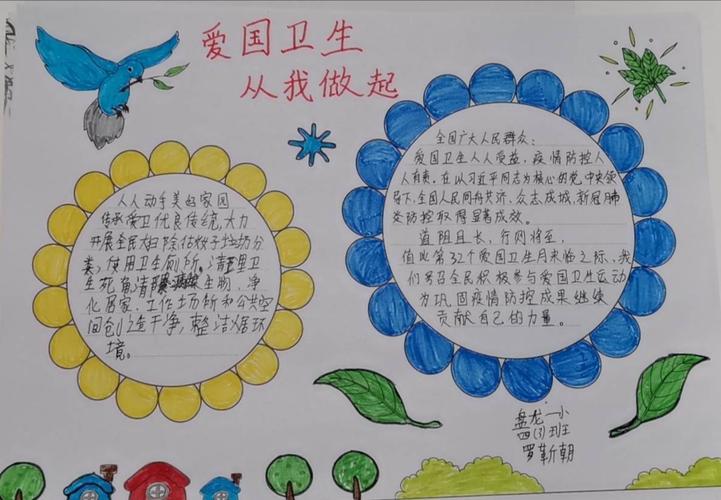 爱国卫生
从我做起
人人动手美的家园
传承爱卫优良传统,大力
开展全民扫除活
类,使用卫生厕所。清理卫
生死角清 生物,净
化居家、工作场所和公共空
间创造干净,整洁居环
境。
全国广大人民群众:
爱国卫生人人受益,疫情防控人
人有责,在以习近平同志为核心的党中央领
导下,全国人民同舟共济、众志成城,新冠肺
炎防控取得显著成效。
道阻且长,行则将至,
值此第32个爱国卫生月来临之际,我
们号召全民积极参与爱国卫生运动
为巩固疫情防控成果继续
贡献自己的力量。
盘龙一小
四(3)班
罗靳朝